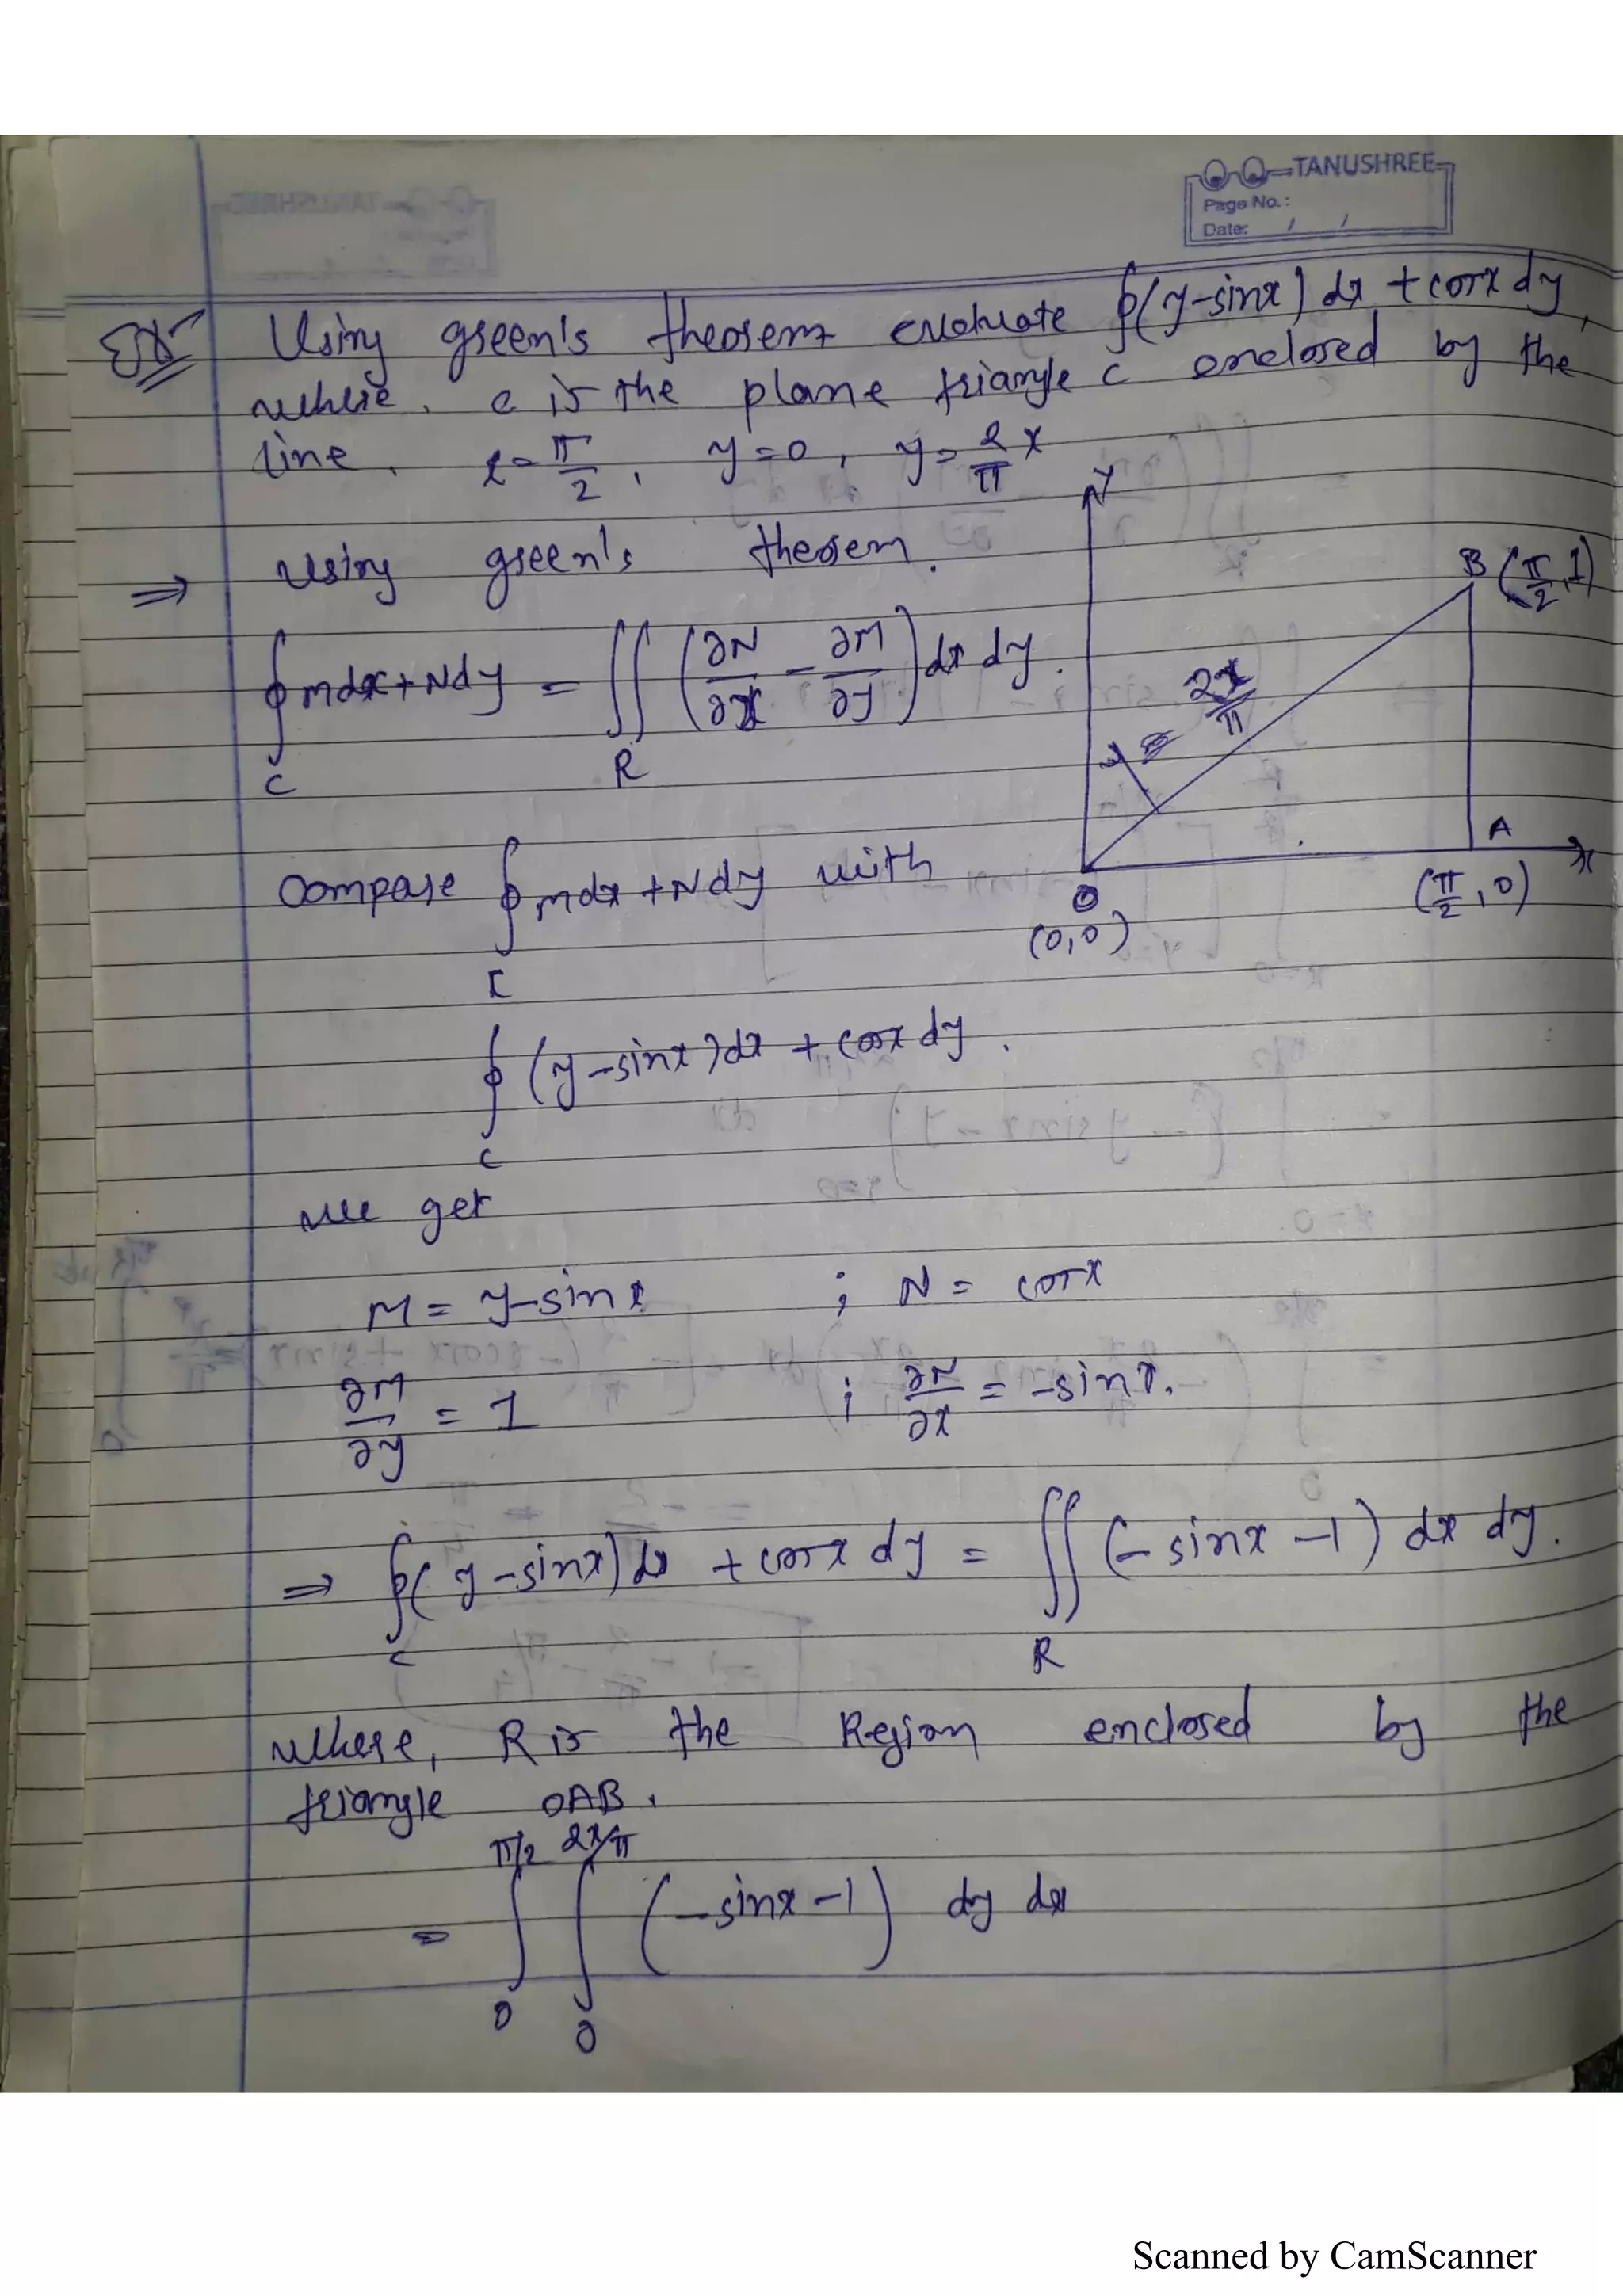 TANUSHREE
Page No.:
Date: / /
Ex Using green's theorem evaluate ∮(y-sinx) dx + cosx dy,
where, c is the plane triangle c enclosed by the
line, x = π/2, y = 0, y = 2/π x
⇒ Using green's theorem.
∮_C Mdx + Ndy = ∬_R (∂N/∂x - ∂M/∂y) dx dy.
Y
B (π/2, 1)
y = 2x/π
A
X
(π/2, 0)
O
(0,0)
Compare ∮_C Mdx + Ndy with
∮_C (y-sinx)dx + cosx dy.
we get
M = y-sinx ; N = cosx
∂M/∂y = 1 ; ∂N/∂x = -sinx.
⇒ ∮_C (y-sinx)dx + cosx dy = ∬_R (-sinx - 1) dx dy.
where, R is the Region enclosed by the
triangle OAB.
= ∫_0^{π/2} ∫_0^{2x/π} (-sinx - 1) dy dx
Scanned by CamScanner